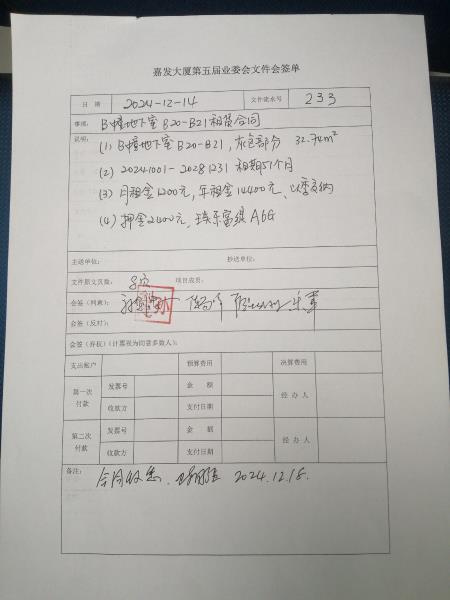 嘉发大厦第五届业委会文件会签单
日 期 2024-12-14 文件流水号 233
事项: B幢地下室B20-B21租赁合同
说明: (1) B幢地下室B20-B21, 灰色部分 32.74m²
(2) 20241001-20281231 租期51个月
(3) 月租金1200元, 年租金14400元、以季交纳
(4) 押金2400元, 璞乐富缇A6G
主送单位: 抄送单位:
文件原文页数: 项目成员:
会签(同意):
会签(反对):
会签(弃权)(计票视为同意多数人):
支出账户 预算费用 决算费用
第一次付款 发票号 金 额 经 办 人
收款方 支付日期
第二次付款 发票号 金 额 经 办 人
收款方 支付日期
备注: 合同收悉. 2024.12.18.